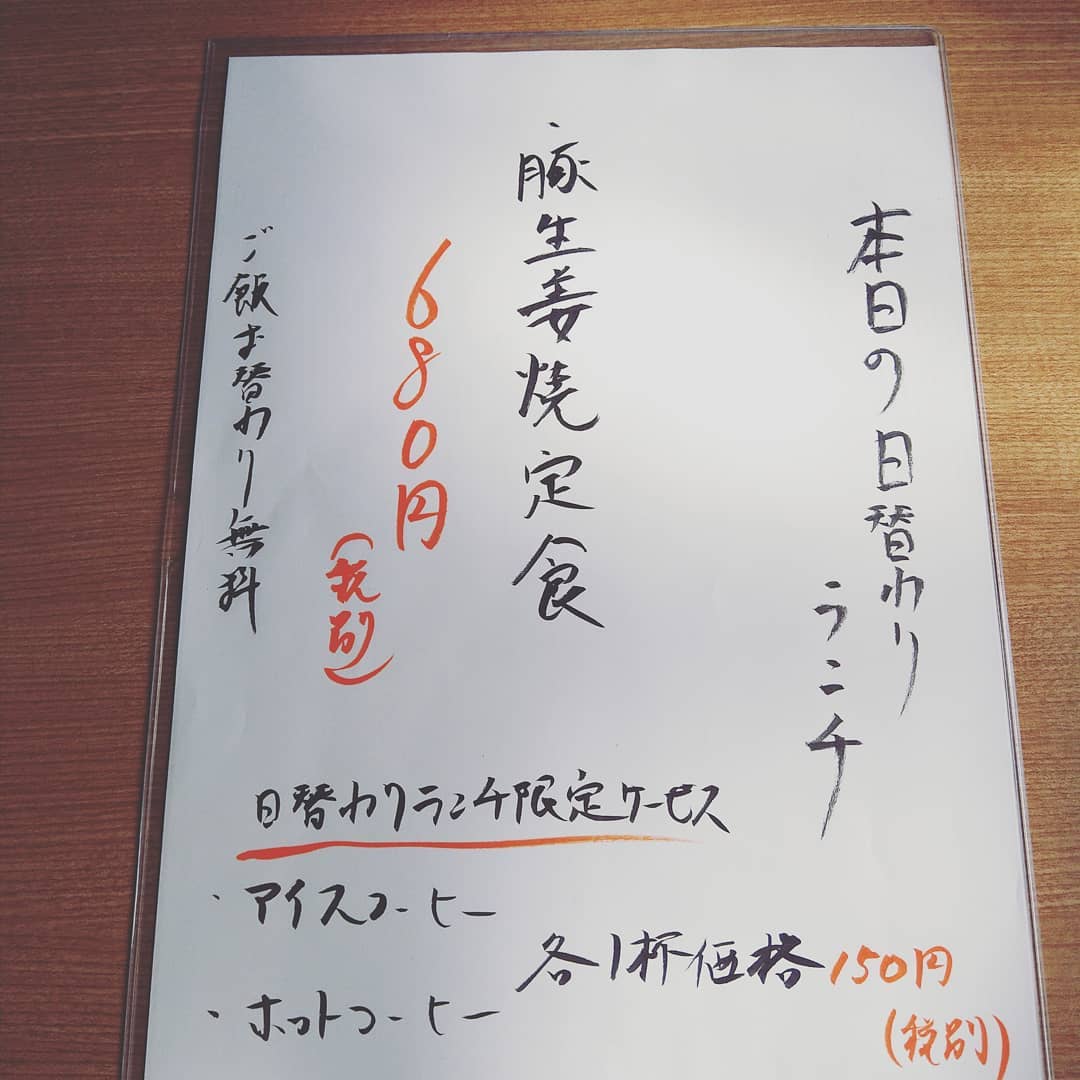 本日の日替わり
ランチ
・豚生姜焼定食
680円
(税別)
ご飯お替わり無料
日替わりランチ限定サービス
・アイスコーヒー
・ホットコーヒー
各1杯価格150円
(税別)